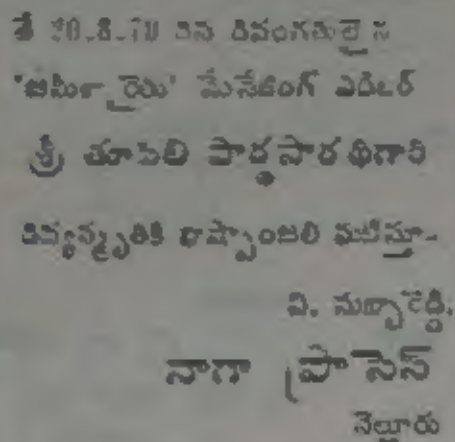 తే 20-8-70 దిన దివంగతులైన
'జమీన్ రైతు' మేనేజింగ్ ఎడిటర్
శ్రీ తూపిలి పార్థసారథిగారి
దివ్యస్మృతికి బాష్పాంజలి ఘటిస్తూ-
వి. సుబ్బారెడ్డి,
నాగా ప్రాసెస్
నెల్లూరు